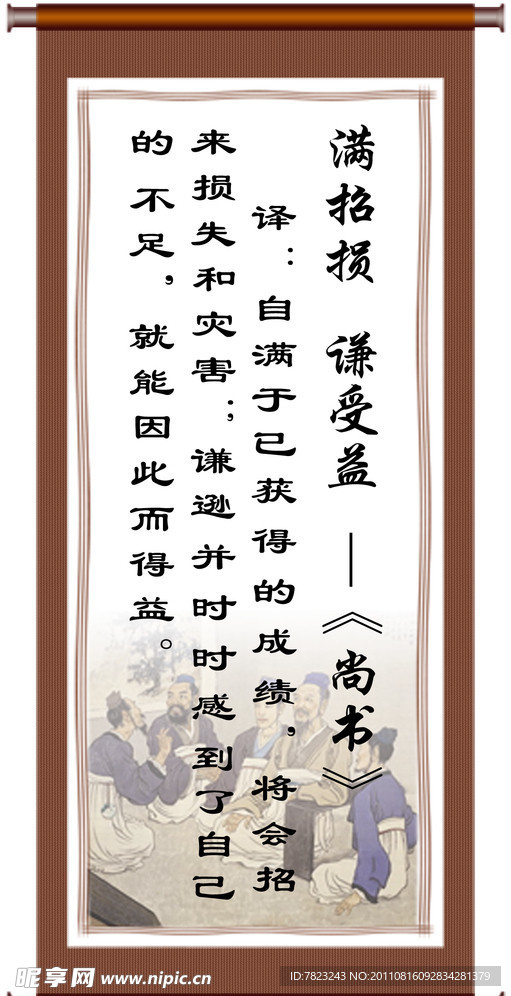 满招损 谦受益 —《尚书》
译：自满于已获得的成绩，将会招
来损失和灾害；谦逊并时时感到了自己
的不足，就能因此而得益。
昵享网 www.nipic.cn
ID:7823243 NO:20110816092834281379